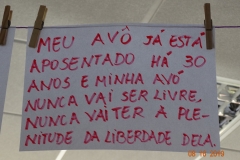 MEU AVÔ JÁ ESTÁ
APOSENTADO HÁ 30
ANOS E MINHA AVÓ
NUNCA VAI SER LIVRE,
NUNCA VAI TER A PLE-
NITUDE DA LIBERDADE DELA.
02/10/2019